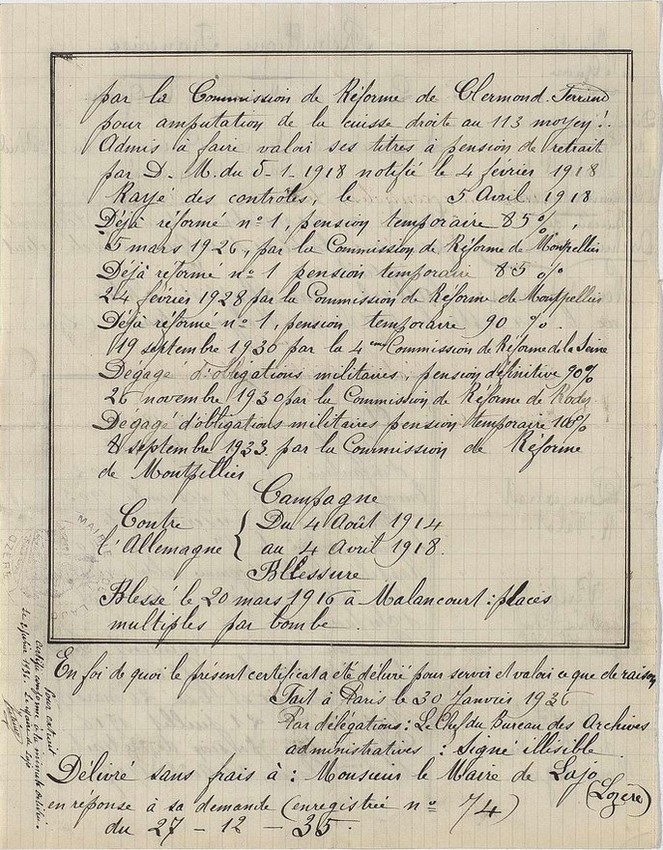 par la Commission de Réforme de Clermond-Ferrand
pour amputation de la cuisse droite au 1/3 moyen!.
Admis à faire valoir ses titres à pension de retrait
par D. M. du 5-1-1918 notifié le 4 février 1918
Rayé des contrôles, le 5 Avril 1918
Déjà réformé n° 1, pension temporaire 85%,
5 mars 1926, par la Commission de Réforme de Montpellier
Déjà réformé n° 1 pension temporaire 85%
24 février 1928 par la Commission de Réforme de Montpellier
Déjà réformé n° 1, pension temporaire 90 %.
19 septembre 1930 par la 4eme Commission de Réforme de la Seine
Dégagé d'obligations militaires, pension définitive 90%
26 novembre 1930 par la Commission de Réforme de Rodez
Dégagé d'obligations militaires pension temporaire 100%
8 septembre 1933 par la Commission de Réforme
de Montpellier
Campagne
Contre l'Allemagne { Du 4 Août 1914
au 4 Avril 1918.
Blessure
Blessé le 20 mars 1916 à Malancourt: places
multiples par bombe
En foi de quoi le présent certificat a été délivré pour servir et valoir ce que de raison
Fait à Paris le 30 Janvier 1936
Par délégations: Le Chef du Bureau des Archives
administratives : Signé illisible
Délivré sans frais à : Monsieur le Maire de Lajo
(Lozère)
en réponse à sa demande (enregistrée n° 74)
du 27 - 12 - 35.
Pour extrait
certifié conforme à la minute
MAIRIE DE LAJO
LOZERE